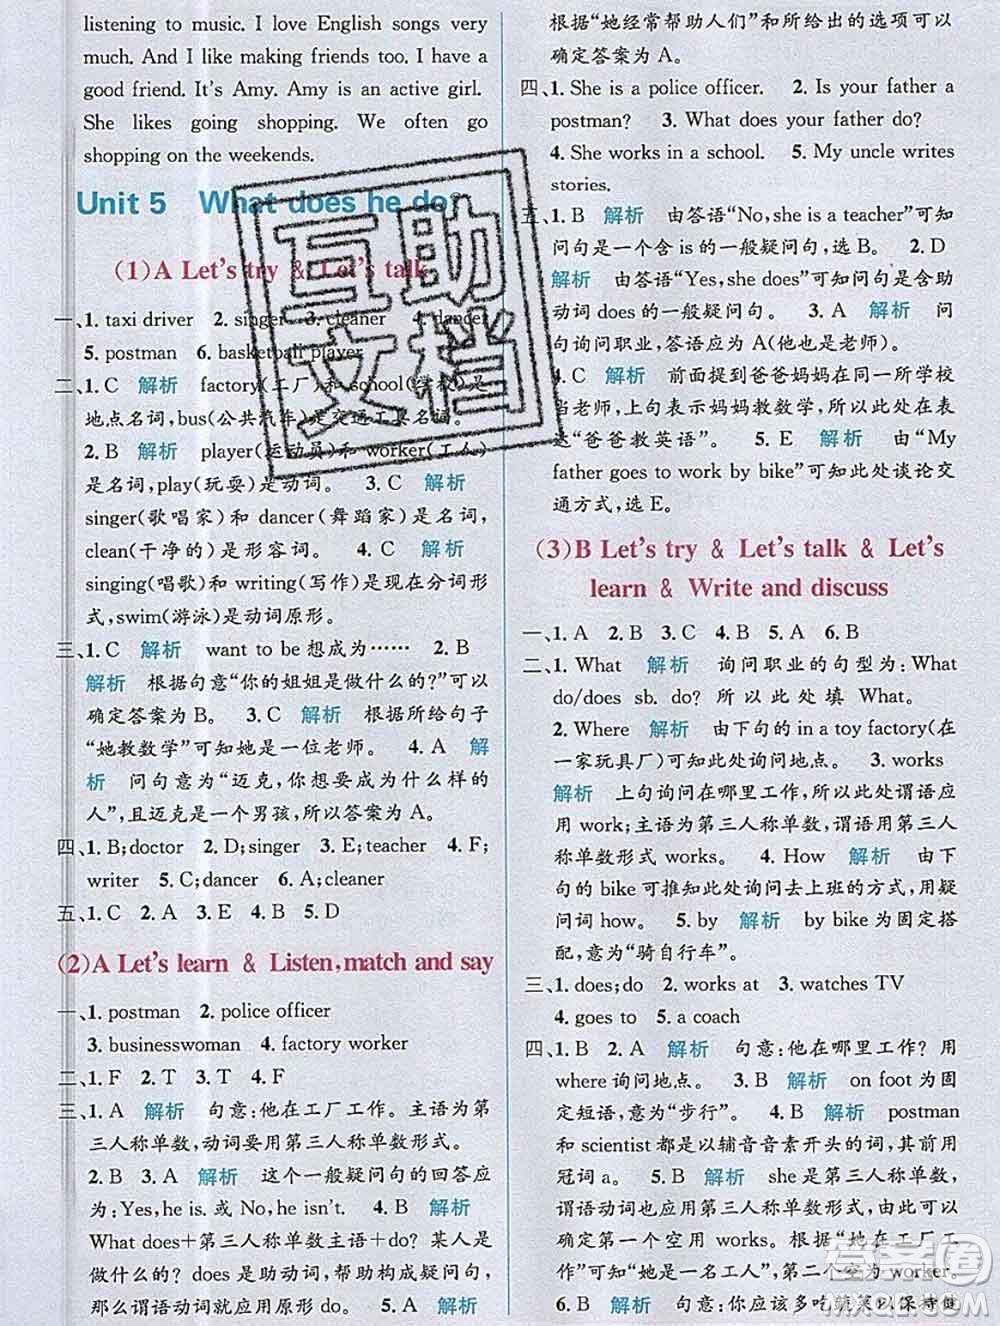 listening to music. I love English songs very
much. And I like making friends too. I have
a good friend. It's Amy. Amy is an active girl.
She likes going shopping. We often go
shopping on the weekends.
Unit 5 What does he do?
(1)A Let's try & Let's talk
一、1. taxi driver 2. singer 3. cleaner 4. dancer
5. postman 6. basketball player
二、1. C 解析 factory(工厂)和school(学校)是
地点名词,bus(公共汽车)是交通工具名词。
2. B 解析 player(运动员)和worker(工人)
是名词,play(玩耍)是动词。 3. C 解析
singer(歌唱家)和 dancer(舞蹈家)是名词,
clean(干净的)是形容词。 4. C 解析
singing(唱歌)和 writing(写作)是现在分词形
式,swim(游泳)是动词原形。
三、1. C 解析 want to be 想成为…… 2. B
解析 根据句意“你的姐姐是做什么的?”可以
确定答案为 B。 3. C 解析 根据所给句子
“她教数学”可知她是一位老师。 4. A 解
析 问句意为“迈克想成为什么样的
人”,且迈克是一个男孩,所以答案为 A。
四、1. B;doctor 2. D;singer 3. E;teacher 4. F;
writer 5. C;dancer 6. A;cleaner
五、1. C 2. A 3. E 4. B 5. D
(2)A Let's learn & Listen,match and say
一、1. postman 2. police officer
3. businesswoman 4. factory worker
二、1. F 2. T 3. T 4. F
三、1. A 解析 句意:他在工厂工作。主语为第
三人称单数,动词要用第三人称单数形式。
2. B 3. A 解析 这个一般疑问句的回答应
为:Yes,he is. 或 No,he isn't. 4. B 解析
What does+第三人称单数主语+do? 某人是
做什么的? does 是助动词,帮助构成疑问句,
那么谓语动词就应用原形 do。 5. A 解析
根据“她经常帮助人们”和所给出的选项可以
确定答案为 A。
四、1. She is a police officer. 2. Is your father a
postman? 3. What does your father do?
4. She works in a school. 5. My uncle writes
stories.
五、1. B 解析 由答语“No,she is a teacher”可知
问句是一个含 is 的一般疑问句,选 B。 2. D
解析 由答语“Yes,she does”可知问句是含助
动词 does 的一般疑问句。 3. A 解析 问
句询问职业,答语应为 A(他也是老师)。
4. C 解析 前面提到爸爸妈妈在同一所学校
当老师,上句表示妈妈教数学,所以此处在表
达“爸爸教英语”。 5. E 解析 由“My
father goes to work by bike”可知此处谈论交
通方式,选 E。
(3)B Let's try & Let's talk & Let's
learn & Write and discuss
一、1. A 2. B 3. B 4. A 5. A 6. B
二、1. What 解析 询问职业的句型为:What
do/does sb. do? 所以此处填 What。
2. Where 解析 由下句的 in a toy factory(在
一家玩具厂)可知此处询问地点。 3. works
解析 上句询问在哪里工作,所以此处谓语应
用 work;主语为第三人称单数,谓语用第三人
称单数形式 works。 4. How 解析 由下
句的 bike 可推知此处询问去上班的方式,用疑
问词 how。 5. by 解析 by bike 为固定搭
配,意为“骑自行车”。
三、1. does;do 2. works at 3. watches TV
4. goes to 5. a coach
四、1. B 2. A 解析 句意:他在哪里工作? 用
where 询问地点。 3. B 解析 on foot 为固
定短语,意为“步行”。 4. B 解析 postman
和 scientist 都是以辅音音素开头的词,其前用
冠词 a。 5. A 解析 she 是第三人称单数,
谓语动词也应用第三人称单数形式,所以可以
确定第一个空用 works。根据“她在工厂工
作”可知“她是一名工人”,第二个空为 worker。
6. B 解析 句意:你应该多吃蔬菜以保持健
互助
文档
答案圈
MXQE.COM